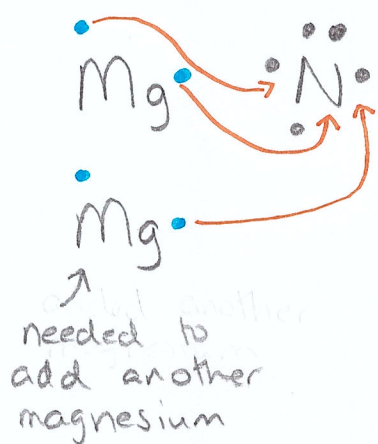 Mg N
Mg
needed to
add another
magnesium